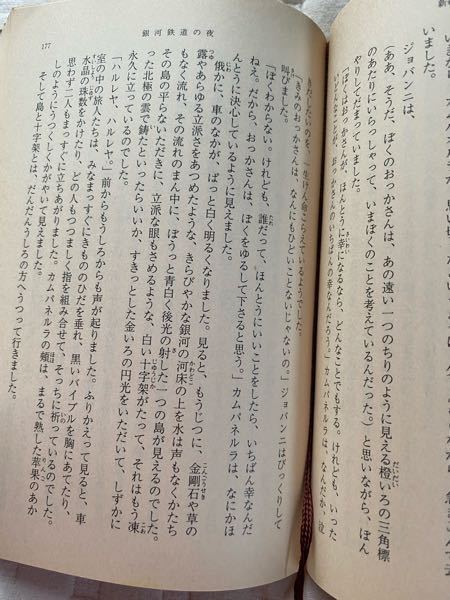 銀河鉄道の夜
177
いました。
ジョバンニは、
(ああ、そうだ、ぼくのおっかさんは、あの遠い一つのちりのように見える橙いろの三角標
のあたりにいらっしゃって、いまぼくのことを考えているんだった。)と思いながら、ぼん
やりしてだまっていました。
「ぼくはおっかさんが、ほんとうに幸になるなら、どんなことでもする。けれども、いった
いどんなことが、おっかさんのいちばんの幸なんだろう。」カムパネルラは、なんだか、泣
きだしたいのを、一生けん命こらえているようでした。
「きみのおっかさんは、なんにもひどいことないじゃないの。」ジョバンニはびっくりして
叫びました。
「ぼくわからない。けれども、誰だって、ほんとうにいいことをしたら、いちばん幸なんだ
ねえ。だから、おっかさんは、ぼくをゆるして下さると思う。」カムパネルラは、なにかほ
んとうに決心しているように見えました。
俄かに、車のなかが、ぱっと白く明るくなりました。見ると、もうじつに、金剛石や草の
露やあらゆる立派さをあつめたような、きらびやかな銀河の河床の上を水は声もなくかたち
もなく流れ、その流れのまん中に、ぼうっと青白く後光の射した一つの島が見えるのでした。
その島の平らないただきに、立派な眼もさめるような、白い十字架がたって、それはもう凍
った北極の雲で鋳たといったらいいか、すきっとした金いろの円光をいただいて、しずかに
永久に立っているのでした。
「ハルレヤ、ハルレヤ。」前からもうしろからも声が起りました。ふりかえって見ると、車
室の中の旅人たちは、みなまっすぐにきもののひだを垂れ、黒いバイブルを胸にあてたり、
水晶の珠数をかけたり、どの人もつつましく指を組み合せて、そっちに祈っているのでした。
思わず二人もまっすぐに立ちあがりました。カムパネルラの頬は、まるで熟した苹果のあか
しのようにうつくしくかがやいて見えました。
そして島と十字架とは、だんだんうしろの方へうつって行きました。